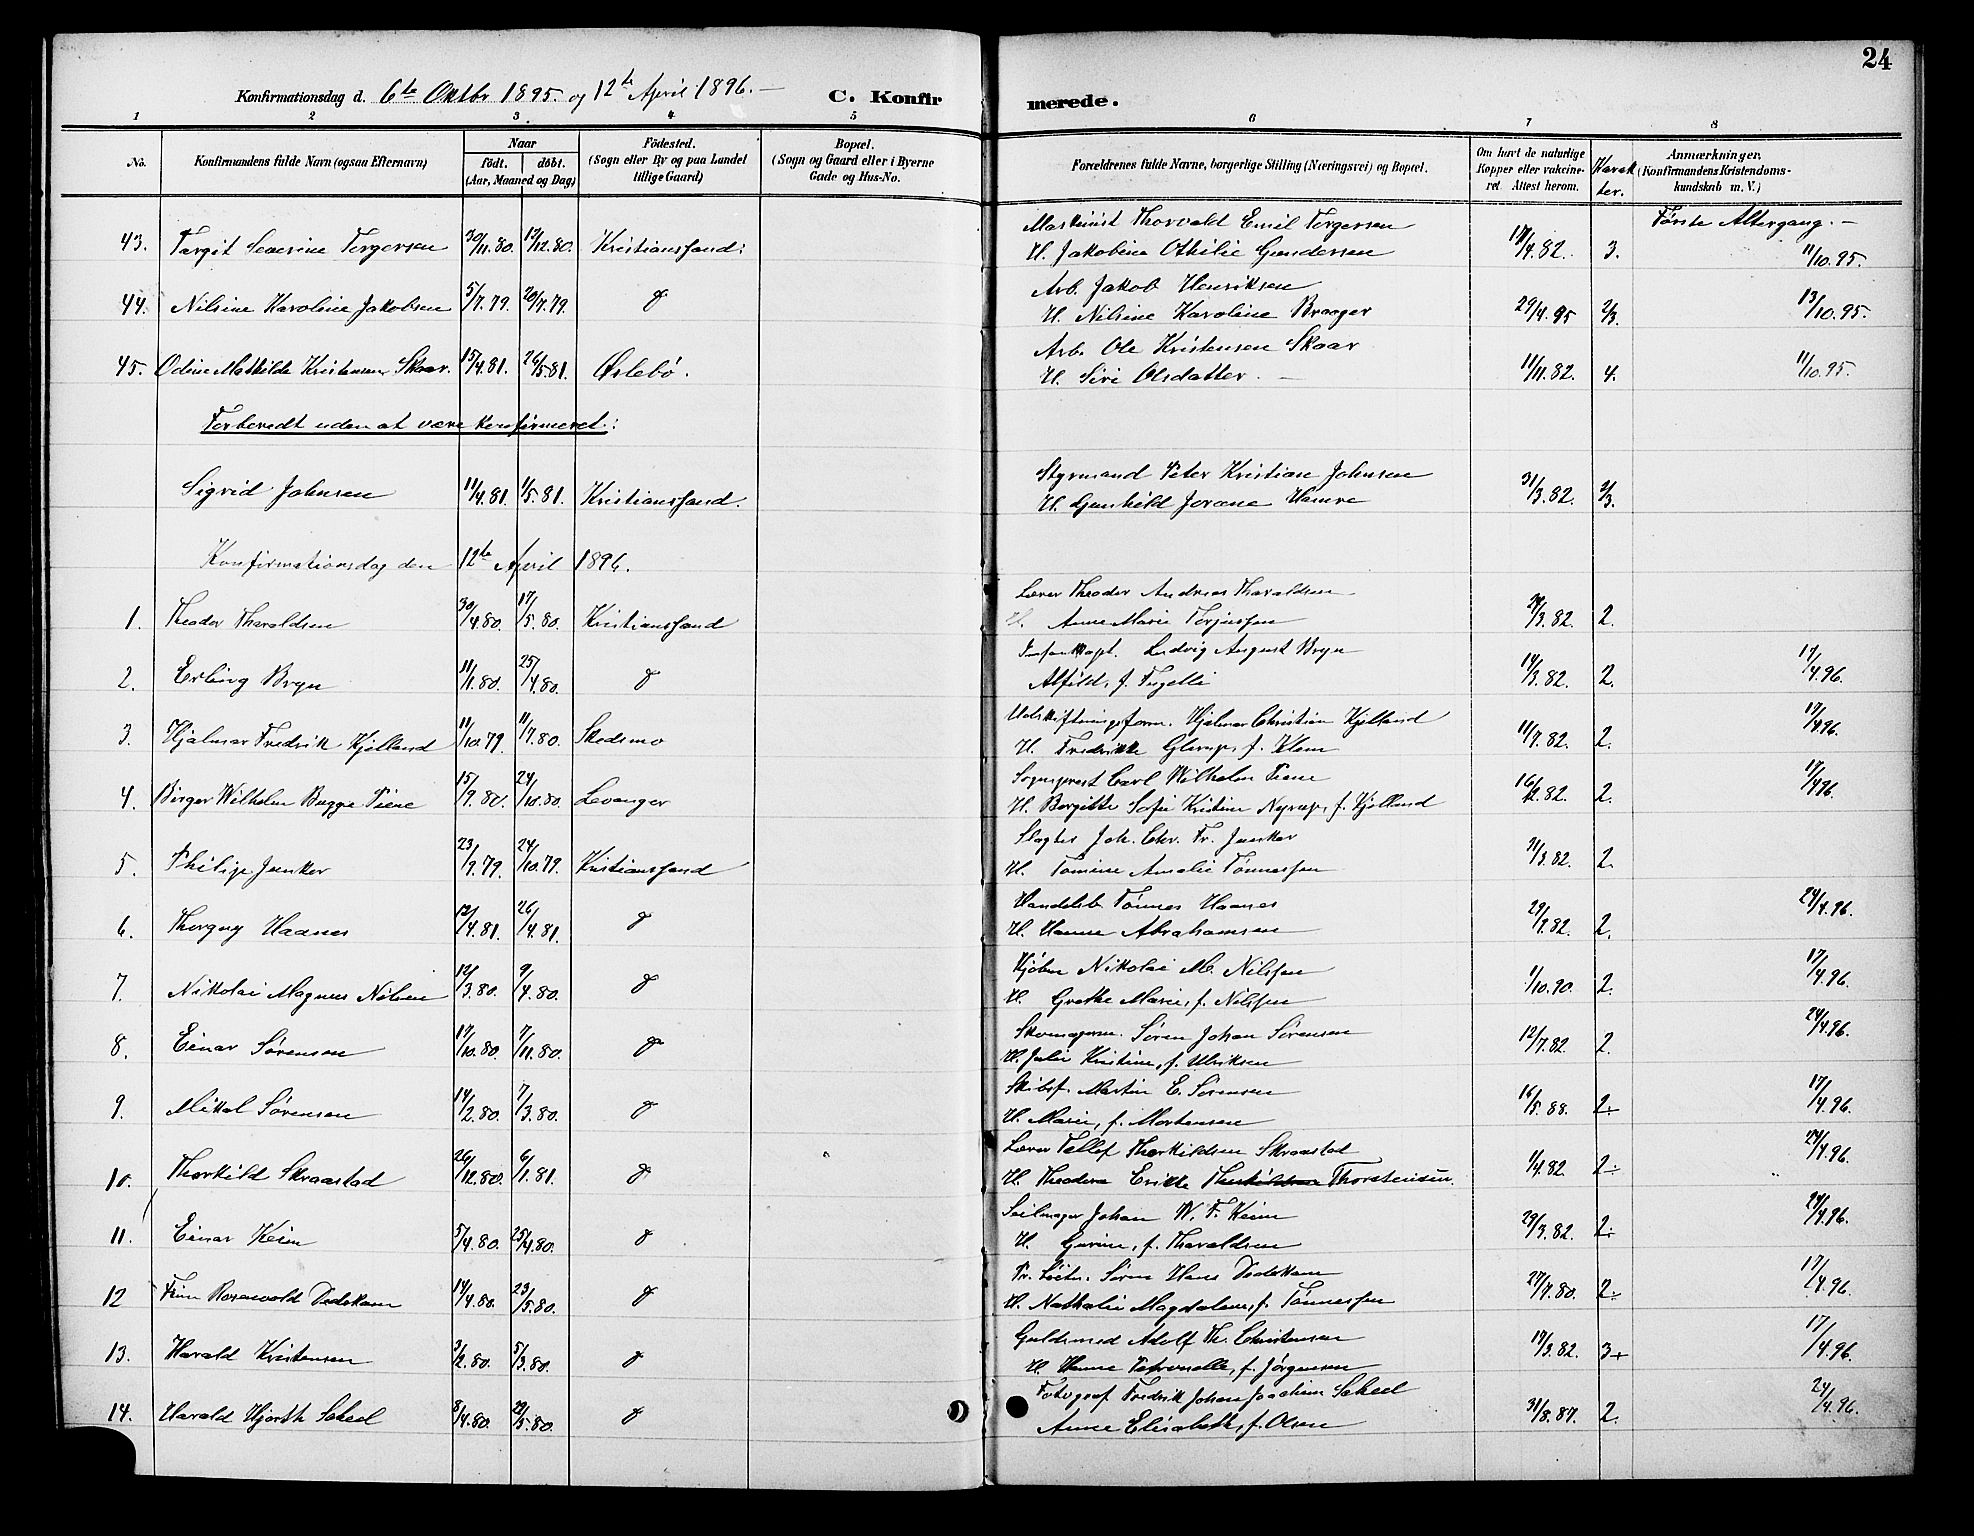 24
Konfirmationsdag d. 6te Oktbr 1895. og 12te April 1896. — C. Konfir merede.
1 2 3 4 5 6 7 8
No. Konfirmandens fulde Navn (ogsaa Efternavn) Naar født. døbt. (Aar, Maaned og Dag) Födested. (Sogn eller By og paa Landet tillige Gaard) Bopæl. (Sogn og Gaard eller i Byerne Gade og Hus-No. Forældrenes fulde Navne, borgerlige Stilling (Næringsvei) og Bopæl. Om havt de naturlige Kopper eller vakcineret Attest herom. Karakter. Anmærkninger, (Konfirmandens Kristendomskundskab m. V.)
Maskinist Thorvald Emil Torgersen Første Altergang. —
43. Targit Severine Torgersen 30/11.80. 13/12.80. Kristianssand. H. Jakobine Othilie Gundersen 17/4.82. 3. 11/10.95.
Arb. Jakob Henriksen
44. Nilsine Karoline Jakobsen 5/7.79. 20/7.79. d H. Nilsine Karoline Braager 29/4.95 2/3. 13/10.95.
Arb. Ole Kristensen Skaar
45. Odine Mathilde Kristensen Skaar. 15/4.81. 26/5.81. Øslebö. H. Siri Olsdatter. — 11/11.82. 4. 11/10.95.
Forberedt uden at være konfirmeret:
Styrmand Peter Kristian Johnsen
Sigrid Johnsen 11/4.81. 1/5.81. Kristianssand. H. Gunhild Jorane Hamre 31/3.82. 2/3.
Konfirmationsdag den 12te April 1896.
Lærer Theodor Andreas Tharaldsen
1. Theodor Tharaldsen 30/4.80. 17/5.80. Kristianssand H. Anne Marie Terjussen /3.82. 2.
Ludvig August Bryn
2. Erling Bryn 11/1.80. 25/4.80. d Alfild, f. Fugelli 14/3.82. 2. 17/4.96.
Udskiftningsform. Hjalmar Christian Kjelland
3. Hjalmar Fredrik Kjelland 11/10.79 11/7.80. Skedsmo H. Fredrikke Glerup, f. Klem 11/7.82. 2. 17/4.96.
Sogneprest Carl Wilhelm Tiene
4. Birger Wilhelm Bugge Tiene 15/9.80. 24/10.80. Levanger H. Bergitte Sofie Kristine Nyrup, f. Kjelland 16/2.82. 2. 17/4.96.
Slagter Joh. Chr. Fr. Junker
5. Philip Junker 23/9.79. 24/10.79. Kristianssand H. Tomine Amalie Tönnessen 31/3.82. 2.
Handelsb. Tönnes Haanes
6. Thorguy Haanes 12/4.81. 26/4.81. d H. Hanne Abrahamsen 29/7.82. 2. 24/4.96.
Kjöbm. Nikolai M. Nilssen
7. Nikolai Magnus Nilsen 12/3.80. 9/4.80. d H. Grethe Marie, f. Nilssen 1/10.90. 2. 17/4.96.
Skomagerm. Sören Johan Sörensen
8. Einar Sørensen 17/10.80. 7/11.80. d H. Julie Kristine, f. Ulriksen 12/7.82. 2. 24/4.96.
Skibsf. Martin E. Sörensen
9. Mikal Sørensen 14/2.80. 7/3.80. d H. Marie, f. Mortensen 16/5.88. 2÷ 17/4.96.
Lærer Tellef Therkildsen Skraastad
10. Therkild Skraastad 26/12.80. 6/1.81. d H. Theodora Erikke Therkildsen Thorstensen. 1/4.82 2÷ 24/4.96.
Seilmager Johan W. F. Keim
11. Einar Keim 5/4.80. 25/4.80. d H. Gurine, f. Tharaldsen 29/3.82. 2÷ 24/4.96.
Pr. Löitn. Sören Hans Dedekam
12 Finn Rosenvold Dedekam 14/4.80. 23/5.80. d H. Nathalie Magdalene, f. Tönnessen 27/7.80. 2÷ 17/4.96.
Guldsmed Adolf Th. Christensen
13. Harald Kristensen 3/2.80. 5/3.80. d H. Hanne Petronelle, f. Jörgensen 17/3.82. 3+ 17/4.96.
Fotograf Fredrik Johan Joachim Scheel
14. Harald Hjorth Scheel 8/4.80. 22/5.80. d Anne Elisabeth, f. Olsen 31/8.87. 2. 24/4.96.